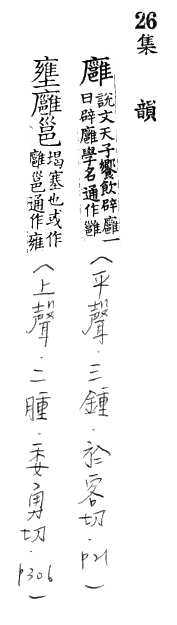 26 集韻
廱
說文天子饗飲辟廱一
曰辟廱學名通作雝
（平聲．三鍾．於容切．p21）
壅廱邕
堨塞也或作
廱邕通作雍
（上聲．二腫．委勇切．p306）